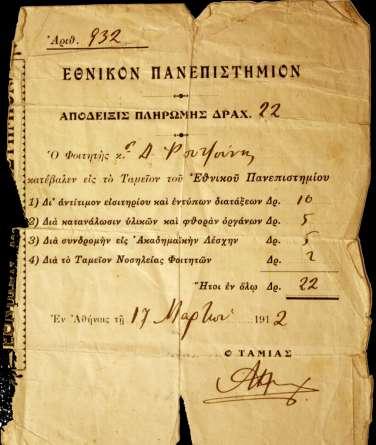 Ἀριθ. 932
ΕΘΝΙΚΟΝ ΠΑΝΕΠΙΣΤΗΜΙΟΝ
ΑΠΟΔΕΙΞΙΣ ΠΛΗΡΩΜΗΣ ΔΡΑΧ. 22
Ὁ Φοιτητὴς κ. Δ.
κατέβαλεν εἰς τὸ Ταμεῖον τοῦ Ἐθνικοῦ Πανεπιστημίου
1) Δι' ἀντίτιμον εἰσιτηρίου καὶ ἐντύπων διατάξεων Δρ. 10
2) Διὰ κατανάλωσιν ὑλικῶν καὶ φθορὰν ὀργάνων Δρ. 5
3) Διὰ συνδρομὴν εἰς Ἀκαδημαϊκὴν Λέσχην Δρ. 5
4) Διὰ τὸ Ταμεῖον Νοσηλείας Φοιτητῶν Δρ. 2
Ἤτοι ἐν ὅλῳ Δρ. 22
Ἐν Ἀθήναις τῇ 17 Μαρτίου 1912
Ο ΤΑΜΙΑΣ